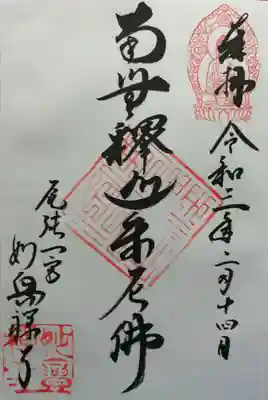 奉拝
令和三年二月十四日
南無釋迦牟尼佛
尾张一宮
妙興禅寺